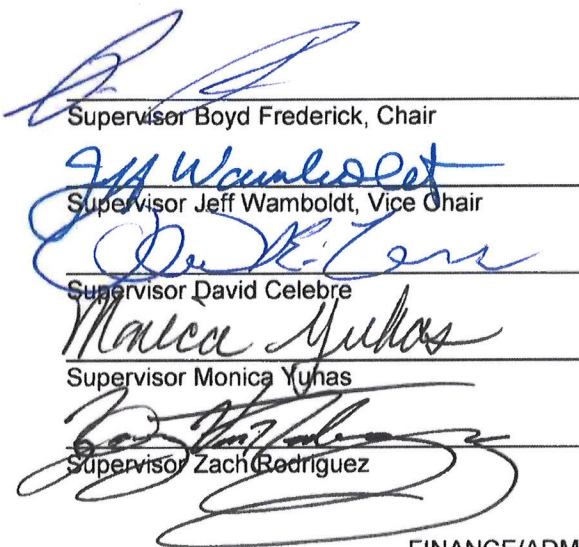 Supervisor Boyd Frederick, Chair
Jeff Wamboldt
Supervisor Jeff Wamboldt, Vice Chair
Supervisor David Celebre
Monica Yuhas
Supervisor Monica Yuhas
Supervisor Zach Rodriguez
FINANCE/ADM